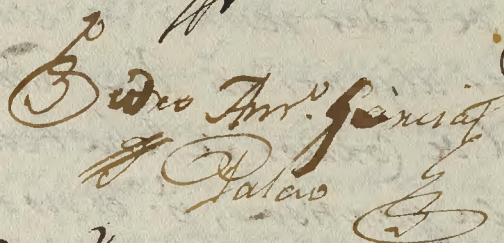 Pedro Anto. García
Palao